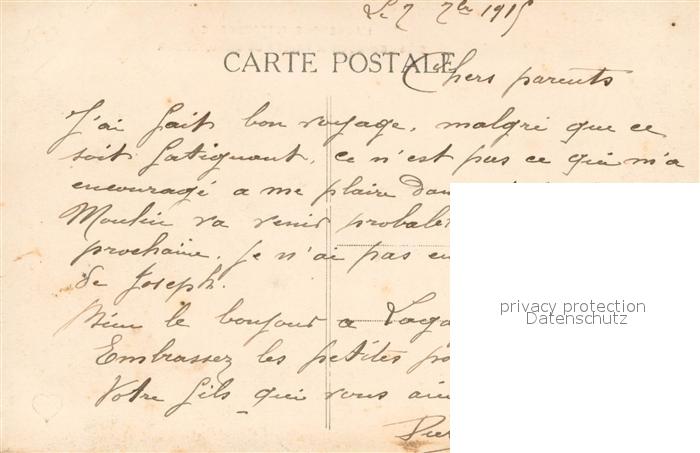 Le 7 7bre 1915
CARTE POSTALE
Chers parents
J'ai fait bon voyage, malgré que ce
soit fatiguant, ce n'est pas ce qui m'a
encouragé a me plaire dan
Moulin va venir probale
prochaine, je n'ai pas eu
de Joseph.
Bien le bonjour a Laga
Embrassez les petites po
Votre fils qui vous aim
privacy protection
Datenschutz